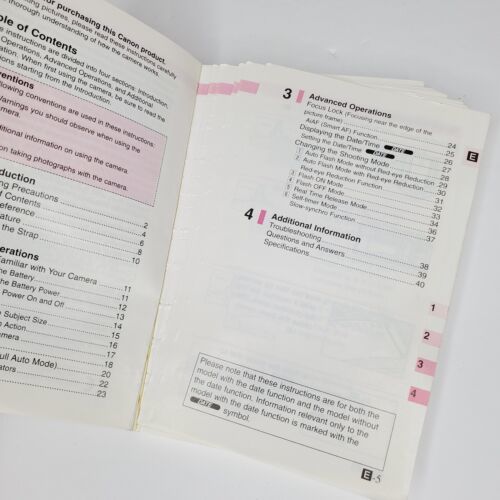 or purchasing this Canon product.
ing pictures, please read these instructions carefully
thorough understanding of how the camera works.
le of Contents
instructions are divided into four sections: Introduction,
Operations, Advanced Operations, and Additional
ation. When first using the camera, be sure to read the
ations starting from the Introduction.
ventions
llowing conventions are used in these instructions.
Warnings you should observe when using the
amera.
ditional information on using the camera.
on taking photographs with the camera.
duction
ng Precautions 2
of Contents 4
eference 6
ature 8
the Strap 10
erations
amiliar with Your Camera 11
the Battery 11
the Battery Power 12
Power On and Off 13
Subject Size 14
n Action 15
mera 17
18
ull Auto Mode) 20
ators 22
23
3 Advanced Operations
Focus Lock (Focusing near the edge of the
picture frame) 24
AiAF (Smart AF) Function 25
Displaying the Date/Time DATE 26
Setting the Date/Time DATE 27
Changing the Shooting Mode 28
1 Auto Flash Mode without Red-eye Reduction 29
2 Auto Flash Mode with Red-eye Reduction 30
Red-eye Reduction Function 31
3 Flash ON Mode 32
4 Flash OFF Mode 33
5 Real Time Release Mode 34
6 Self-timer Mode 36
Slow-synchro Function 37
4 Additional Information
Troubleshooting 38
Questions and Answers 39
Specifications 40
E
1
2
3
4
Please note that these instructions are for both the
model with the date function and the model without
the date function. Information relevant only to the
model with the date function is marked with the
DATE symbol.
E-5